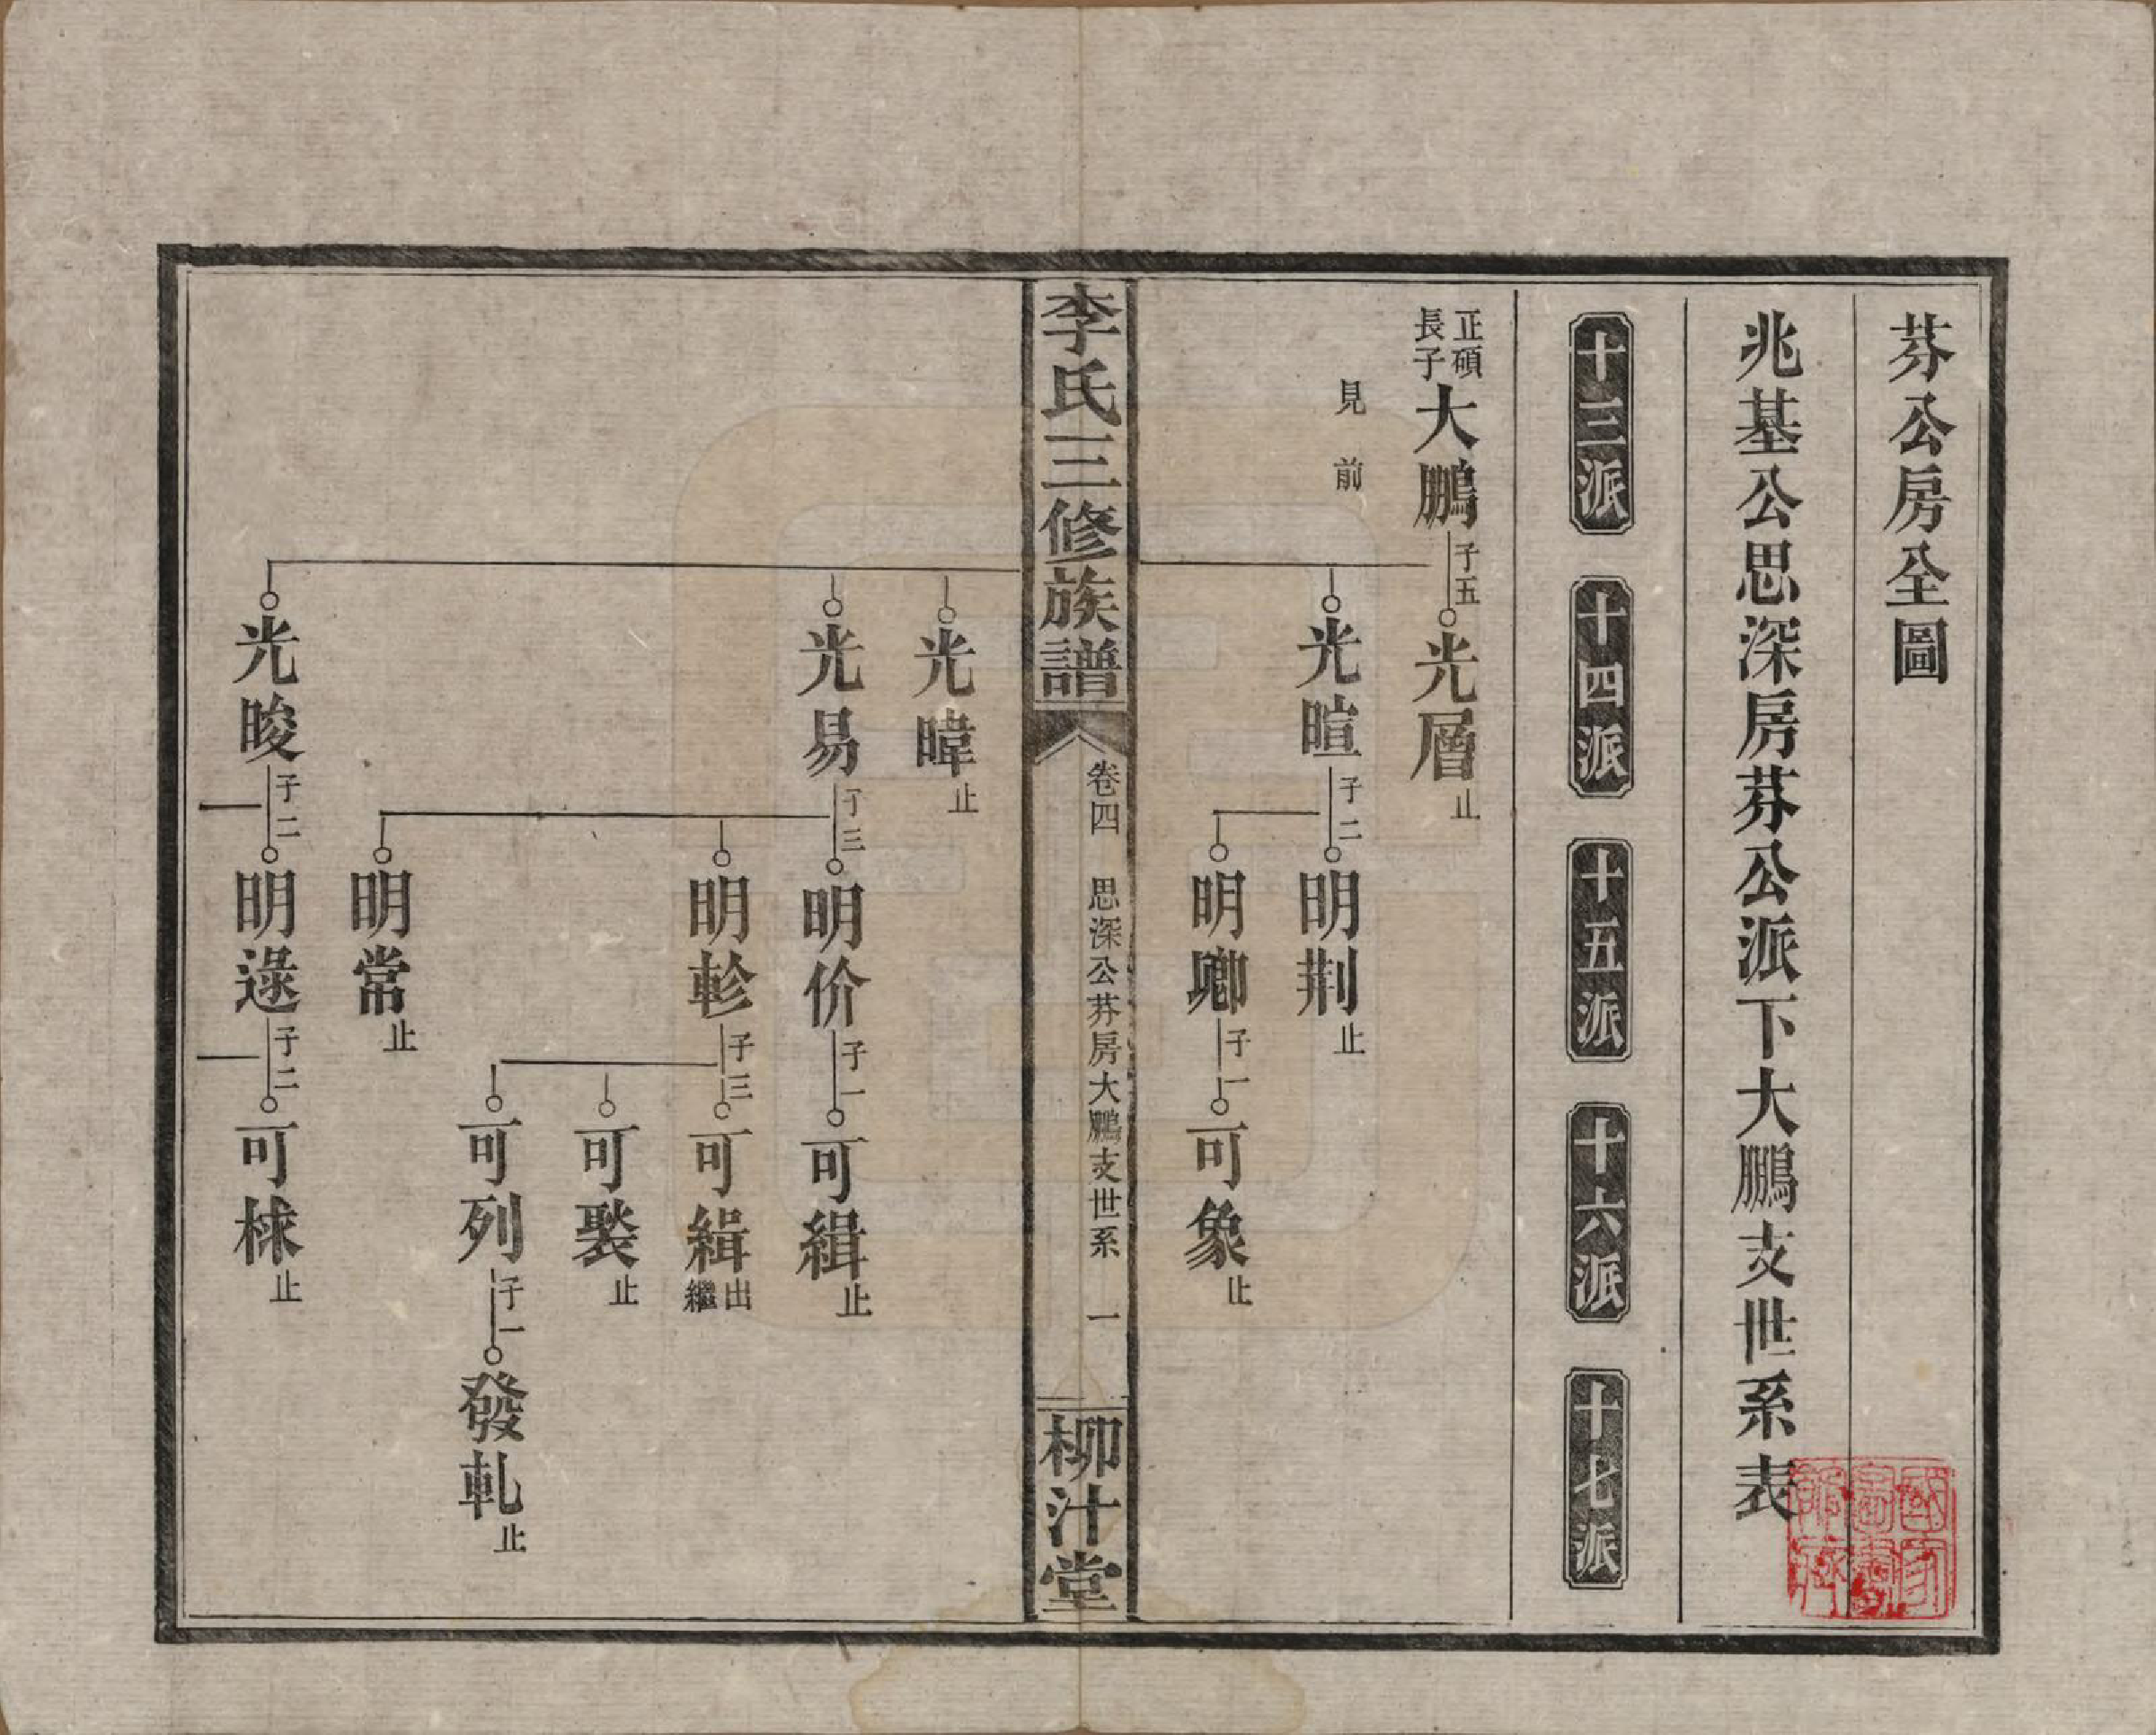 芬公房全圖
兆基公思深房芬公派下大鵬支世系表
十三派 十四派 十五派 十六派 十七派
正碩
長子
大鵬 子五 光層 止
見前
光暄 子二 明荆 止
明卿 子一 可象 止
李氏三修族譜 卷四 思深公芬房大鵬支世系 一 柳汁堂
光暐 止
光易 子三 明价 子一 可緝 止
明軫 子三 可緝 出繼
可褧 止
可列 子一 發軋 止
明常 止
光晙 子二 明逯 子二 可梂 止